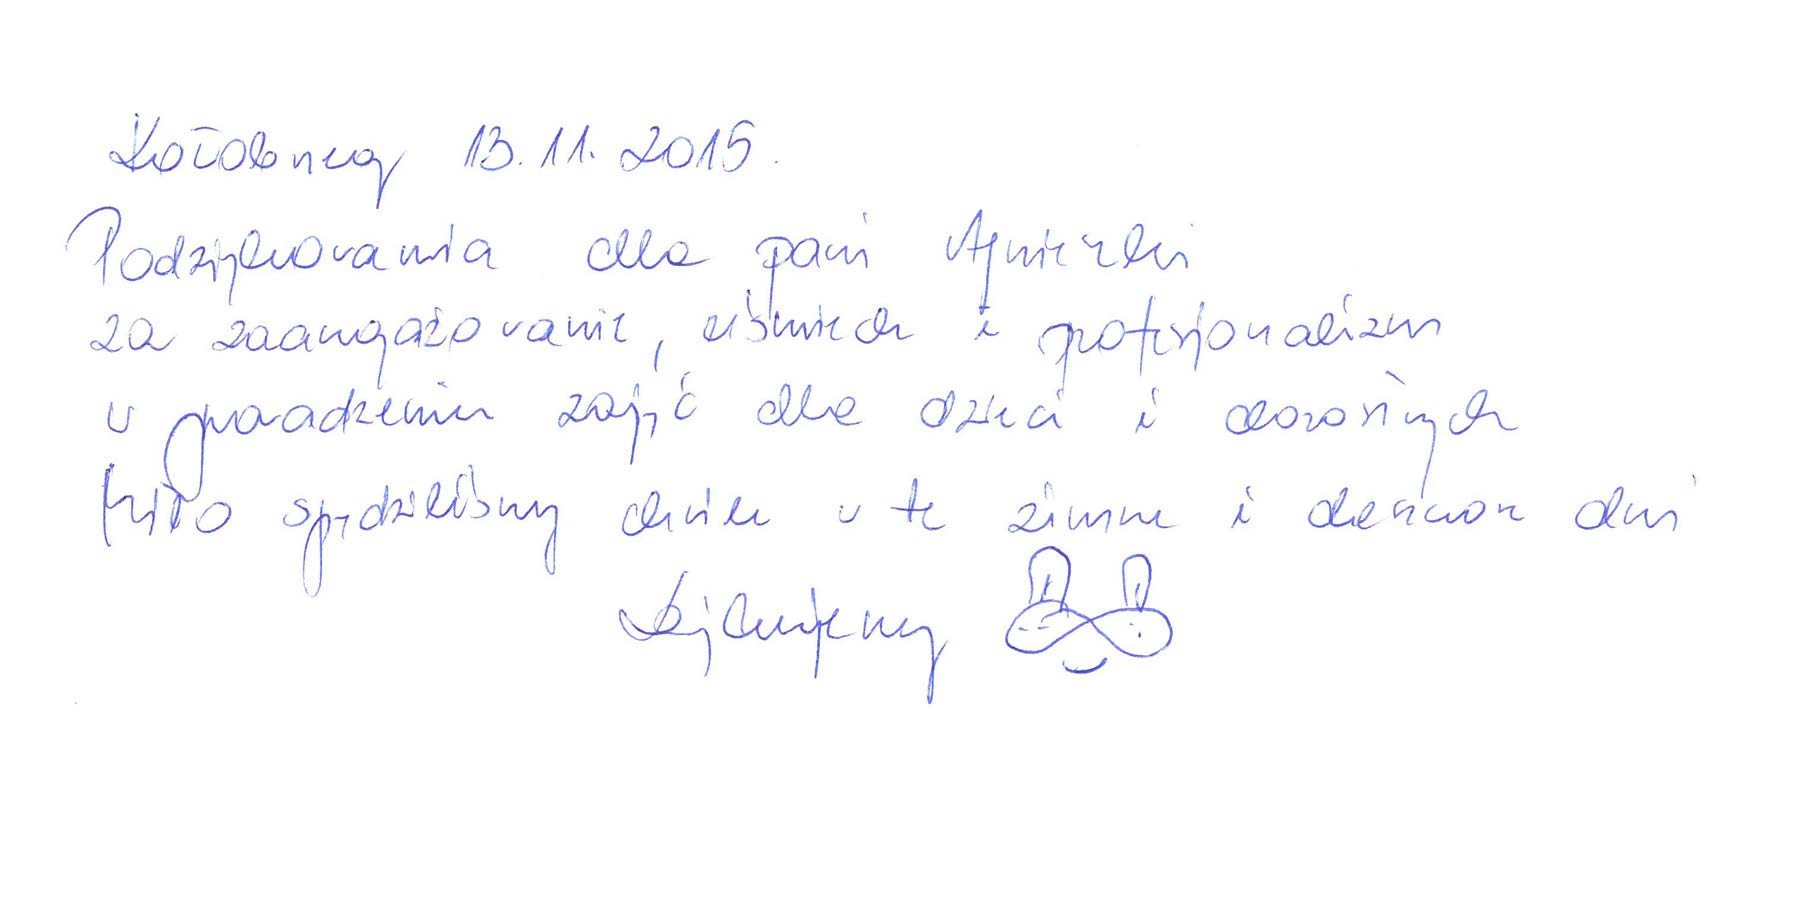 Kołobrzeg 13.11.2015.
Podziękowania dla pani Agnieszki
za zaangażowanie, uśmiech i profesjonalizm
w prowadzeniu zajęć dla dzieci i dorosłych
Miło spędziliśmy chwile w te zimne i deszczowe dni
Dziękujemy